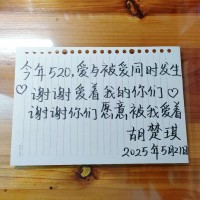 今年520,爱与被爱同时发生
♡谢谢爱着我的你们♡
谢谢你们愿意被我爱着
胡楚琪
2025年5月21日